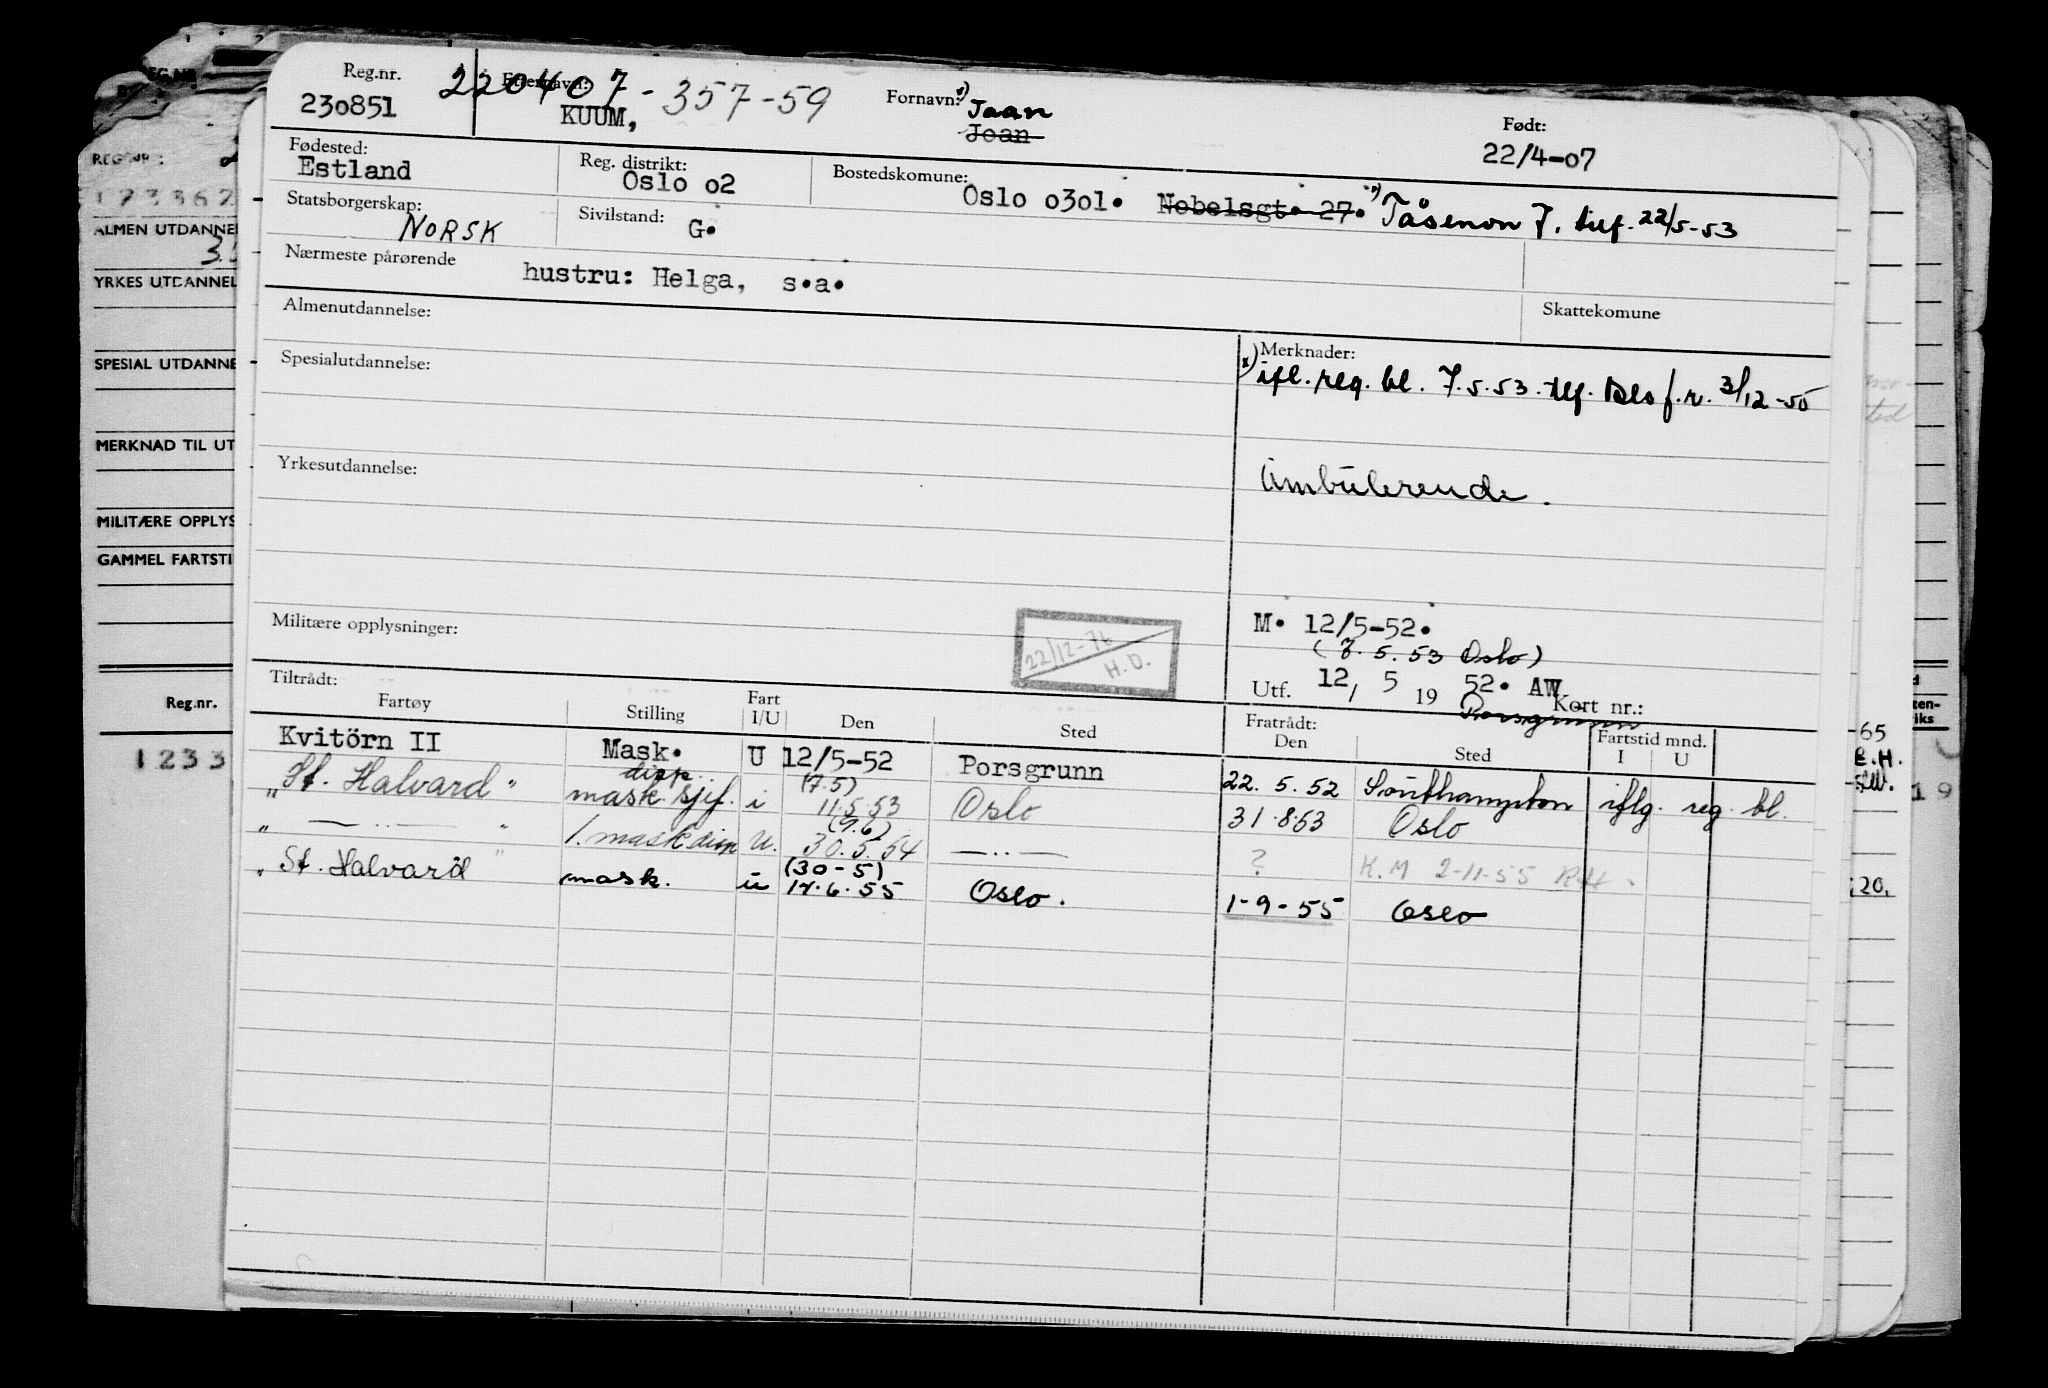 Reg.nr. Etternavn: Fornavn: x) Født:
230851 220407-357-59 KUUM, Jaan Joan 22/4-07
Fødested: Estland Reg. distrikt: Oslo o2 Bostedskomune: Oslo o3o1. Nobelsgt. 27. x) 7. 22/5-53
Statsborgerskap: NORSK Sivilstand: G.
Nærmeste pårørende hustru: Helga, s.a.
Almenutdannelse: Skattekomune
Spesialutdannelse: x) Merknader:
ifl. reg. bl. 7.5.53. 3/12-55
Yrkesutdannelse: Ambulerende.
Militære opplysninger: 22/12-76 H.D. M. 12/5-52.
(7.5.53 Oslo)
Utf. 12, 5 19 52. AW. Kort nr.:
Porsgrunn
Tiltrådt: Fratrådt:
Fartøy Stilling Fart I/U Den Sted Den Sted Fartstid mnd. I U
Kvitörn II Mask. U 12/5-52 Porsgrunn 22.5.52 Southampton iflg. reg. bl.
" St. Halvard " disp. mask.sjef. i (7.5) 11.5.53 Oslo 31.8.53 Oslo
" — .. — " 1. mask U. (9.6) 30.5.54 — .. — ? K.M 2-11-55 RH.
" St. Halvard " mask. u (30-5) 17.6.55 Oslo. 1-9-55 Oslo
REG.NR.:
ALMEN UTDANNEL
YRKES UTDANNEL
SPESIAL UTDANNE
MERKNAD TIL UT
MILITÆRE OPPLYS
GAMMEL FARTSTI
Reg.nr.
1233
65
E.H.
20.
19